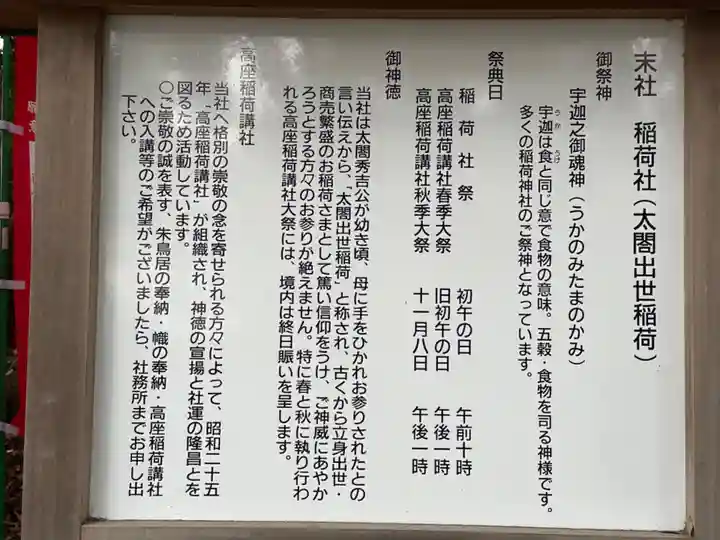 末社　稲荷社（太閤出世稲荷）
御祭神
宇迦之御魂神（うかのみたまのかみ）
宇迦は食と同じ意で食物の意味。五穀・食物を司る神様です。
うか　うけ
多くの稲荷神社のご祭神となっています。
祭典日
稲荷社祭　初午の日　午前十時
高座稲荷講社春季大祭　旧初午の日　午後一時
高座稲荷講社秋季大祭　十一月八日　午後一時
御神徳
当社は太閤秀吉公が幼き頃、母に手をひかれお参りされたとの
言い伝えから、「太閤出世稲荷」と称され、古くから立身出世・
商売繁盛のお稲荷さまとして篤い信仰をうけ、ご神威にあやか
ろうとする方々のお参りが絶えません。特に春と秋に執り行わ
れる高座稲荷講社大祭には、境内は終日賑いを呈します。
高座稲荷講社
当社へ格別の崇敬の念を寄せられる方々によって、昭和二十五
年「高座稲荷講社」が組織され、神徳の宣揚と社運の隆昌とを
図るため活動しています。
〇ご崇敬の誠を表す、朱鳥居の奉納・幟の奉納・高座稲荷講社
への入講等のご希望がございましたら、社務所までお申し出
下さい。